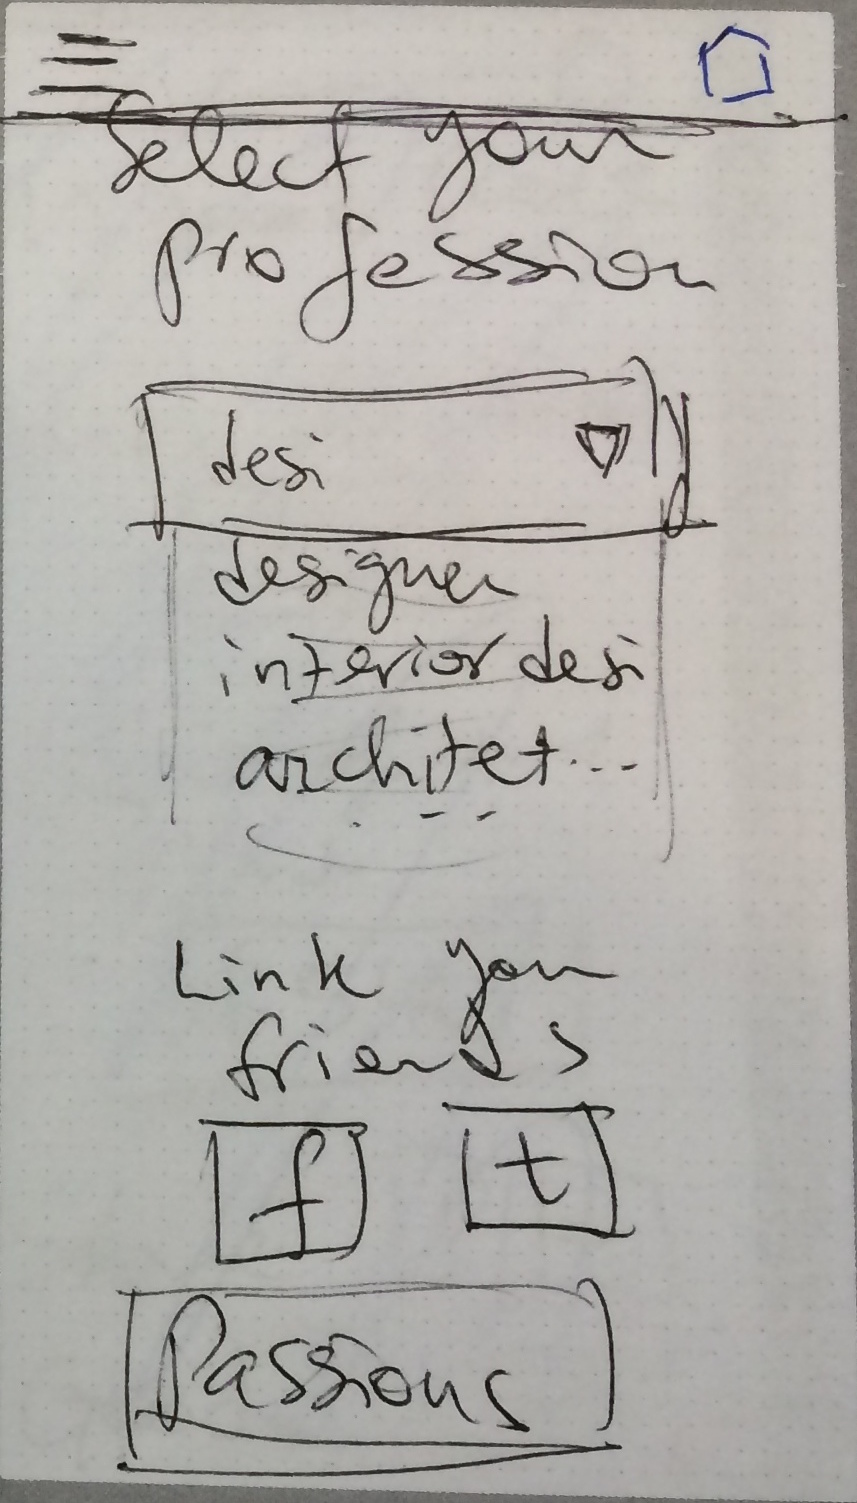 Select your
profession
desi
designer
interior desi
architet...
Link you
friends
f t
Passions